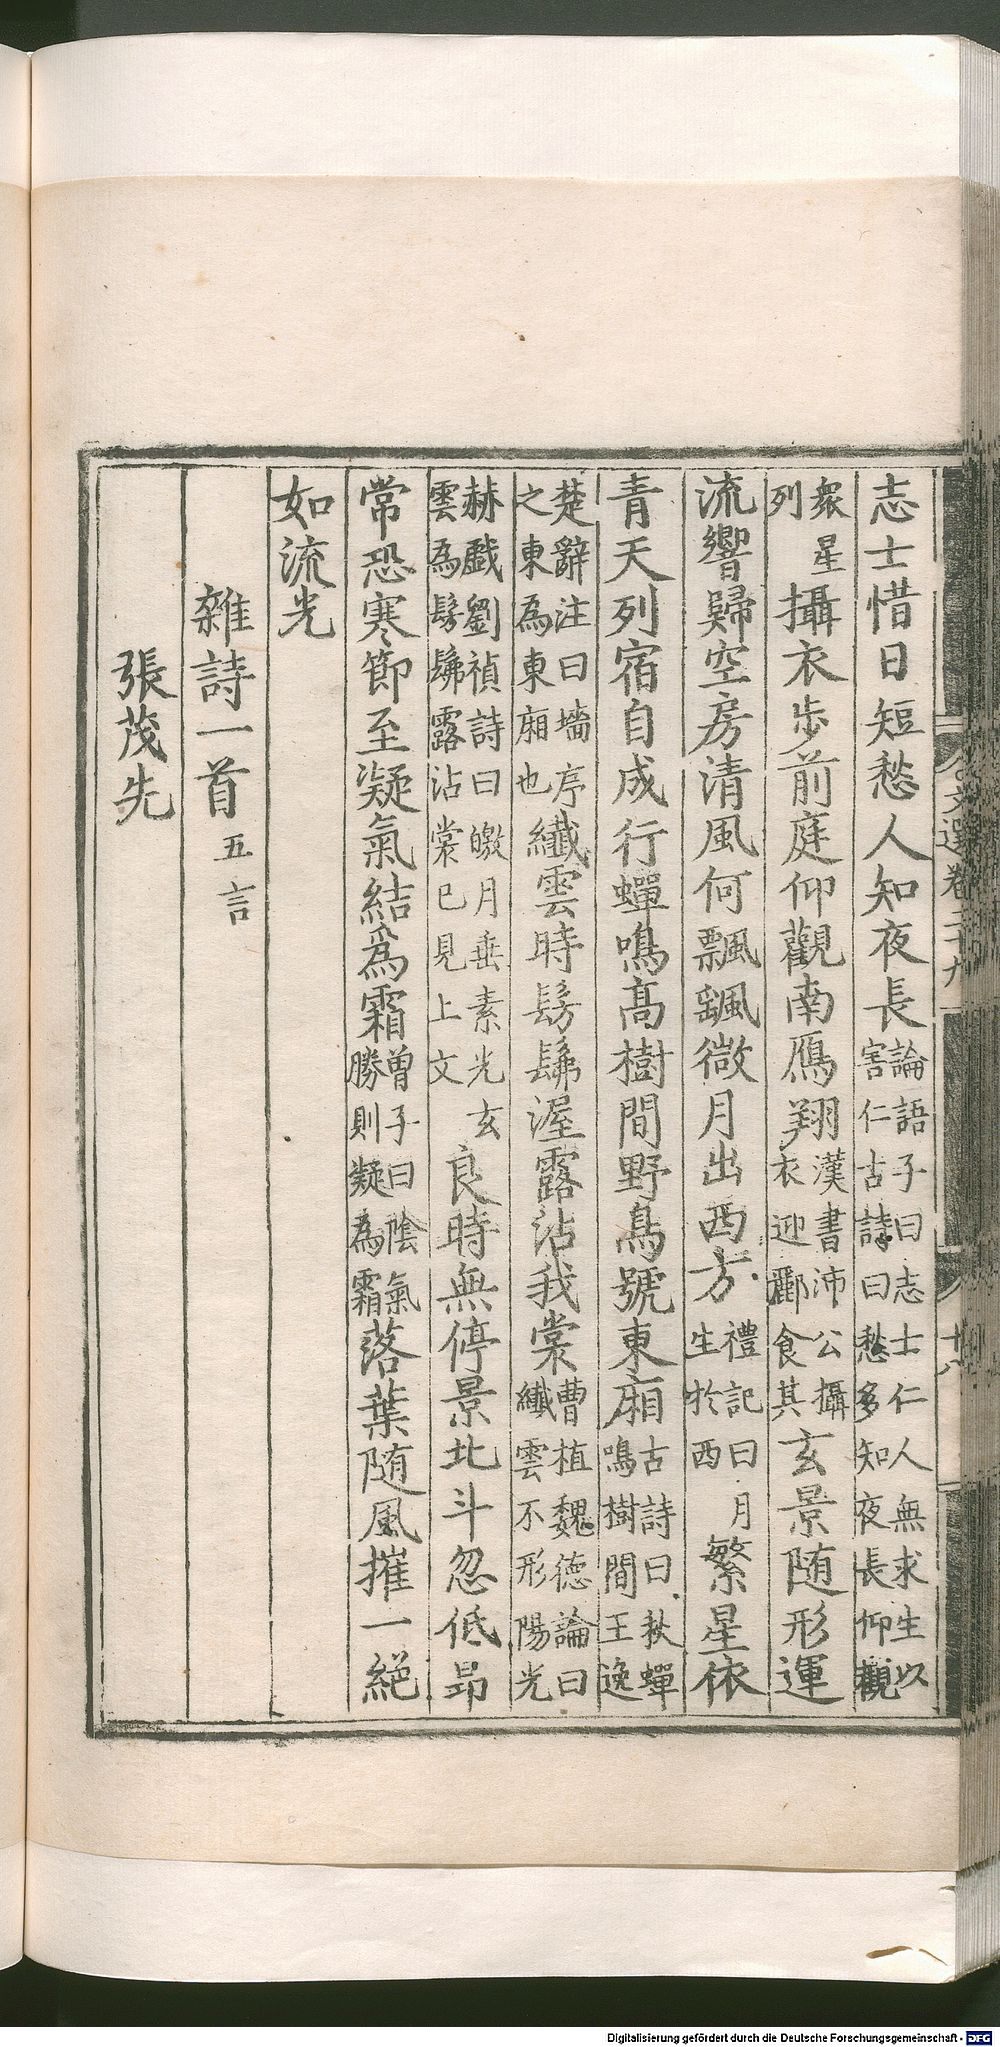 志士惜日短愁人知夜長論語子曰志士仁人無求生以害仁古詩曰愁多知夜長仰觀
衆星列攝衣步前庭仰觀南鴈翔漢書沛公攝衣迎酈食其玄景随形運
流響歸空房清風何飄颻微月出西方禮記曰月生於西繁星依
青天列宿自成行蟬鳴高樹間野鳥號東廂古詩曰秋蟬鳴樹間王逸
楚辭注曰墻序之東為東廂也纖雲時髣髴渥露沾我裳曹植魏德論曰纖雲不形陽光
赫戲劉禎詩曰皦月垂素光玄雲為髣髴露沾裳已見上文良時無停景北斗忽低昂
常恐寒節至凝氣結爲霜曾子曰陰氣勝則凝為霜落葉随風摧一絕
如流光
雜詩一首五言
張茂先
文選卷二十九
十八
Digitalisierung gefördert durch die Deutsche Forschungsgemeinschaft - DFG